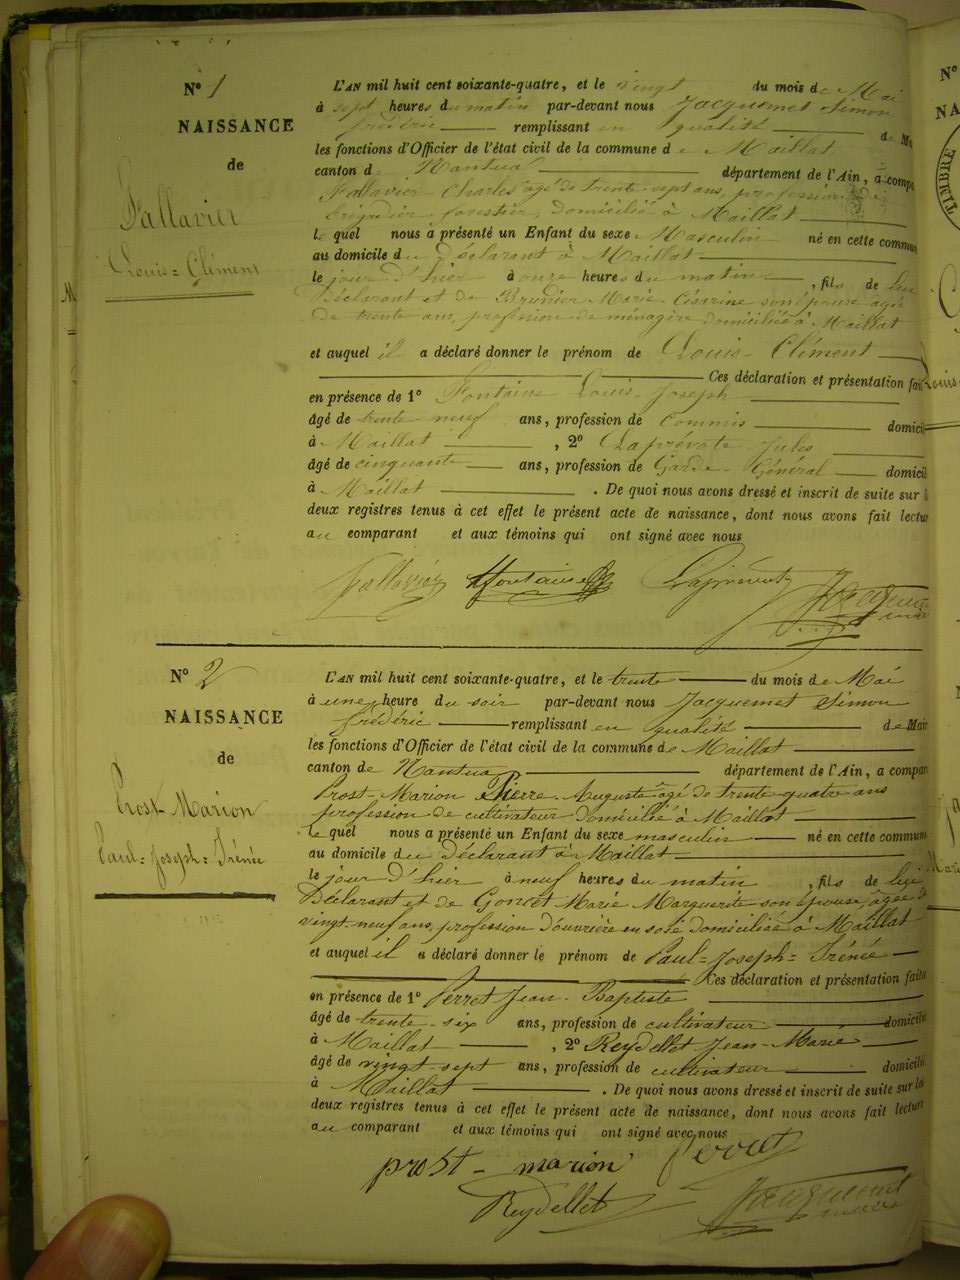 N° 1
NAISSANCE
de
Fallavier
Louis=Clément
L'AN mil huit cent soixante-quatre, et le vingt du mois de Mai
à sept heures du matin par-devant nous Jacquemet Simon
frédéric remplissant en qualité de Ma
les fonctions d'Officier de l'état civil de la commune de Maillat
canton de Nantua département de l'Ain, a compa
Fallavier Charles âgé de trente sept ans, profession de
brigadier forestier, domicilié à Maillat
le quel nous a présenté un Enfant du sexe Masculin né en cette commun
au domicile du Déclarant à Maillat
le jour d'hier à onze heures du matin, fils de lui
Déclarant et de Brunier Marie Césarine son épouse âgée
de trente ans, profession de ménagère domiciliée à Maillat
et auquel il a déclaré donner le prénom de Louis-Clément
Ces déclaration et présentation fai
en présence de 1° Fontaine Louis-Joseph
âgé de trente neuf ans, profession de Commis domicil
à Maillat, 2° Laprévote Jules
âgé de cinquante ans, profession de Garde-Général domicil
à Maillat. De quoi nous avons dressé et inscrit de suite sur l
deux registres tenus à cet effet le présent acte de naissance, dont nous avons fait lectur
au comparant et aux témoins qui ont signé avec nous
Fallavier Fontaine Laprévote Jacquemet
maire
N° 2
NAISSANCE
de
Prost-Marion
Paul=Joseph=Irénée
L'AN mil huit cent soixante-quatre, et le trente du mois de Mai
à une heure du soir par-devant nous Jacquemet Simon
frédéric remplissant en qualité de Mair
les fonctions d'Officier de l'état civil de la commune de Maillat
canton de Nantua département de l'Ain, a compar
Prost-Marion Pierre-Auguste âgé de trente-quatre ans
profession de cultivateur domicilié à Maillat
le quel nous a présenté un Enfant du sexe masculin né en cette commun
au domicile du Déclarant à Maillat
le jour d'hier à neuf heures du matin, fils de lui
Déclarant et de Goncet Marie Marguerite son épouse, âgée de
vingt-neuf ans, profession d'ouvrière en soie domiciliée à Maillat
et auquel il a déclaré donner le prénom de Paul=Joseph=Irénée
Ces déclaration et présentation faite
en présence de 1° Perret Jean-Baptiste
âgé de trente-six ans, profession de cultivateur domicilié
à Maillat, 2° Reydellet Jean-Marie
âgé de vingt-sept ans, profession de cultivateur domicilié
à Maillat. De quoi nous avons dressé et inscrit de suite sur les
deux registres tenus à cet effet le présent acte de naissance, dont nous avons fait lecture
au comparant et aux témoins qui ont signé avec nous
prost-marion Perret
Reydellet Jacquemet
maire
N°
NA
TIMBRE
Louis